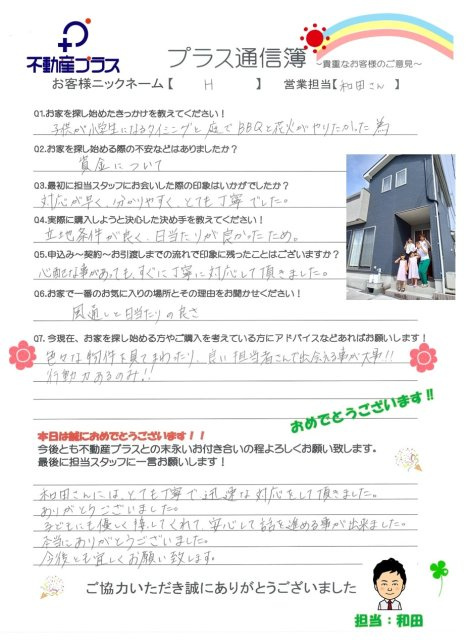 不動産プラス
プラス通信簿 ～貴重なお客様のご意見～
お客様ニックネーム【 H 】 営業担当【 和田さん 】
Q1.お家を探し始めたきっかけを教えてください！
子供が小学生になるタイミングと庭でBBQと花火がやりたかった為
Q2.お家を探し始める際の不安などはありましたか？
資金について
Q3.最初に担当スタッフにお会いした際の印象はいかがでしたか？
対応が早く、分かりやすく、とても丁寧でした。
Q4.実際に購入しようと決心した決め手を教えてください！
立地条件が良く、日当たりが良かったため。
Q5.申込み～契約～お引渡しまでの流れで印象に残ったことはございますか？
心配な事があっても、すぐに丁寧に対応して頂きました。
Q6.お家で一番のお気に入りの場所とその理由をお聞かせください！
風通しと日当たりの良さ
Q7.今現在、お家を探し始める方やご購入を考えている方にアドバイスなどあればお願いします！
色々な物件を見てまわたり、良い担当者さんで出会える事が大事!!
行動力あるのみ!!
おめでとうございます!!
本日は誠におめでとうございます！！
今後とも不動産プラスとの末永いお付き合いの程よろしくお願い致します。
最後に担当スタッフに一言お願いします！
和田さんには、とても丁寧で迅速な対応をして頂きました。
ありがとうございました。
子どもにも優しく接してくれて、安心して話を進める事が出来ました。
本当にありがとうございました。
今後とも宜しくお願い致します。
ご協力いただき誠にありがとうございました
担当：和田